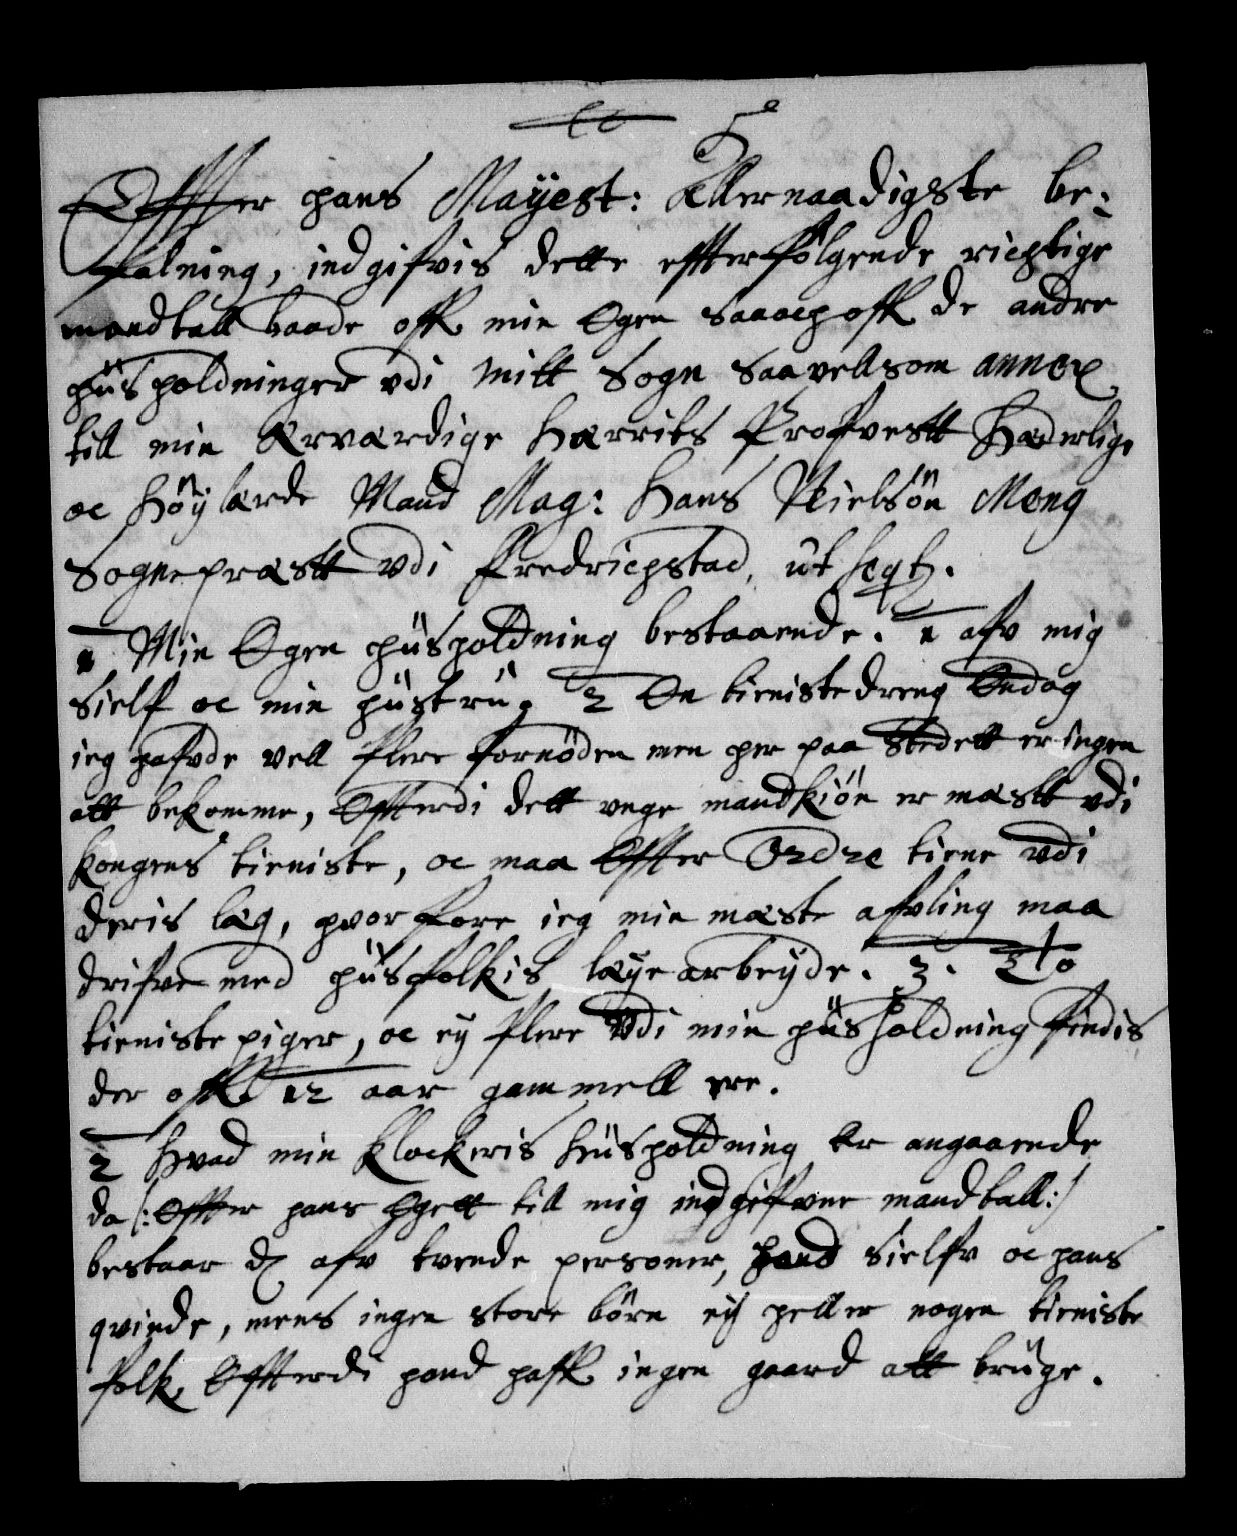 Effter hans Mayest: Allernaadigste be-
falning, indgifvis dette effterfølgende richtige
mandtall baade aff min Egen saaoch aff de andre
hüsholdninger vdi mitt Sogn saavellsom annex
till min Ærværdige Herrits Proffvestt Hæderlige
oc Høylærde Mand Mag: Hans Nielsøn Meng
Sognepræstt vdi Fredrichstad, ut seqt.
1 Min Egen hüsholdning bestaaende. 1 afv mig
sielf oc min hüstrü, 2 En tienistedreng Endog
ieg hafvde vell flere fornøden men her paa Stedett er ingen
att bekomme, Effterdi dett unge mandkiøn er mestt vdi
Kongens tieniste, oc maa Effter Ordre tiene vdi
deris læg, hvorfore ieg min mæste afvling maa
drifve med hüsfolkis leye arbeyde. 3. To
tieniste piger, oc ey flere Vdi min hüsholdning findis
der aff 12 aar gammell ere.
2 Hvad min Klockeris Hüsholdning Er angaaende
da /: Effter hans Egett till mig indgiffvne mandtall :/
bestaar d afv tvende personer, hand sielfv oc hans
qvinde, mens ingen store børn eij heller nogen tieniste
folk, Effterdi hand haff ingen gaard att brüge.